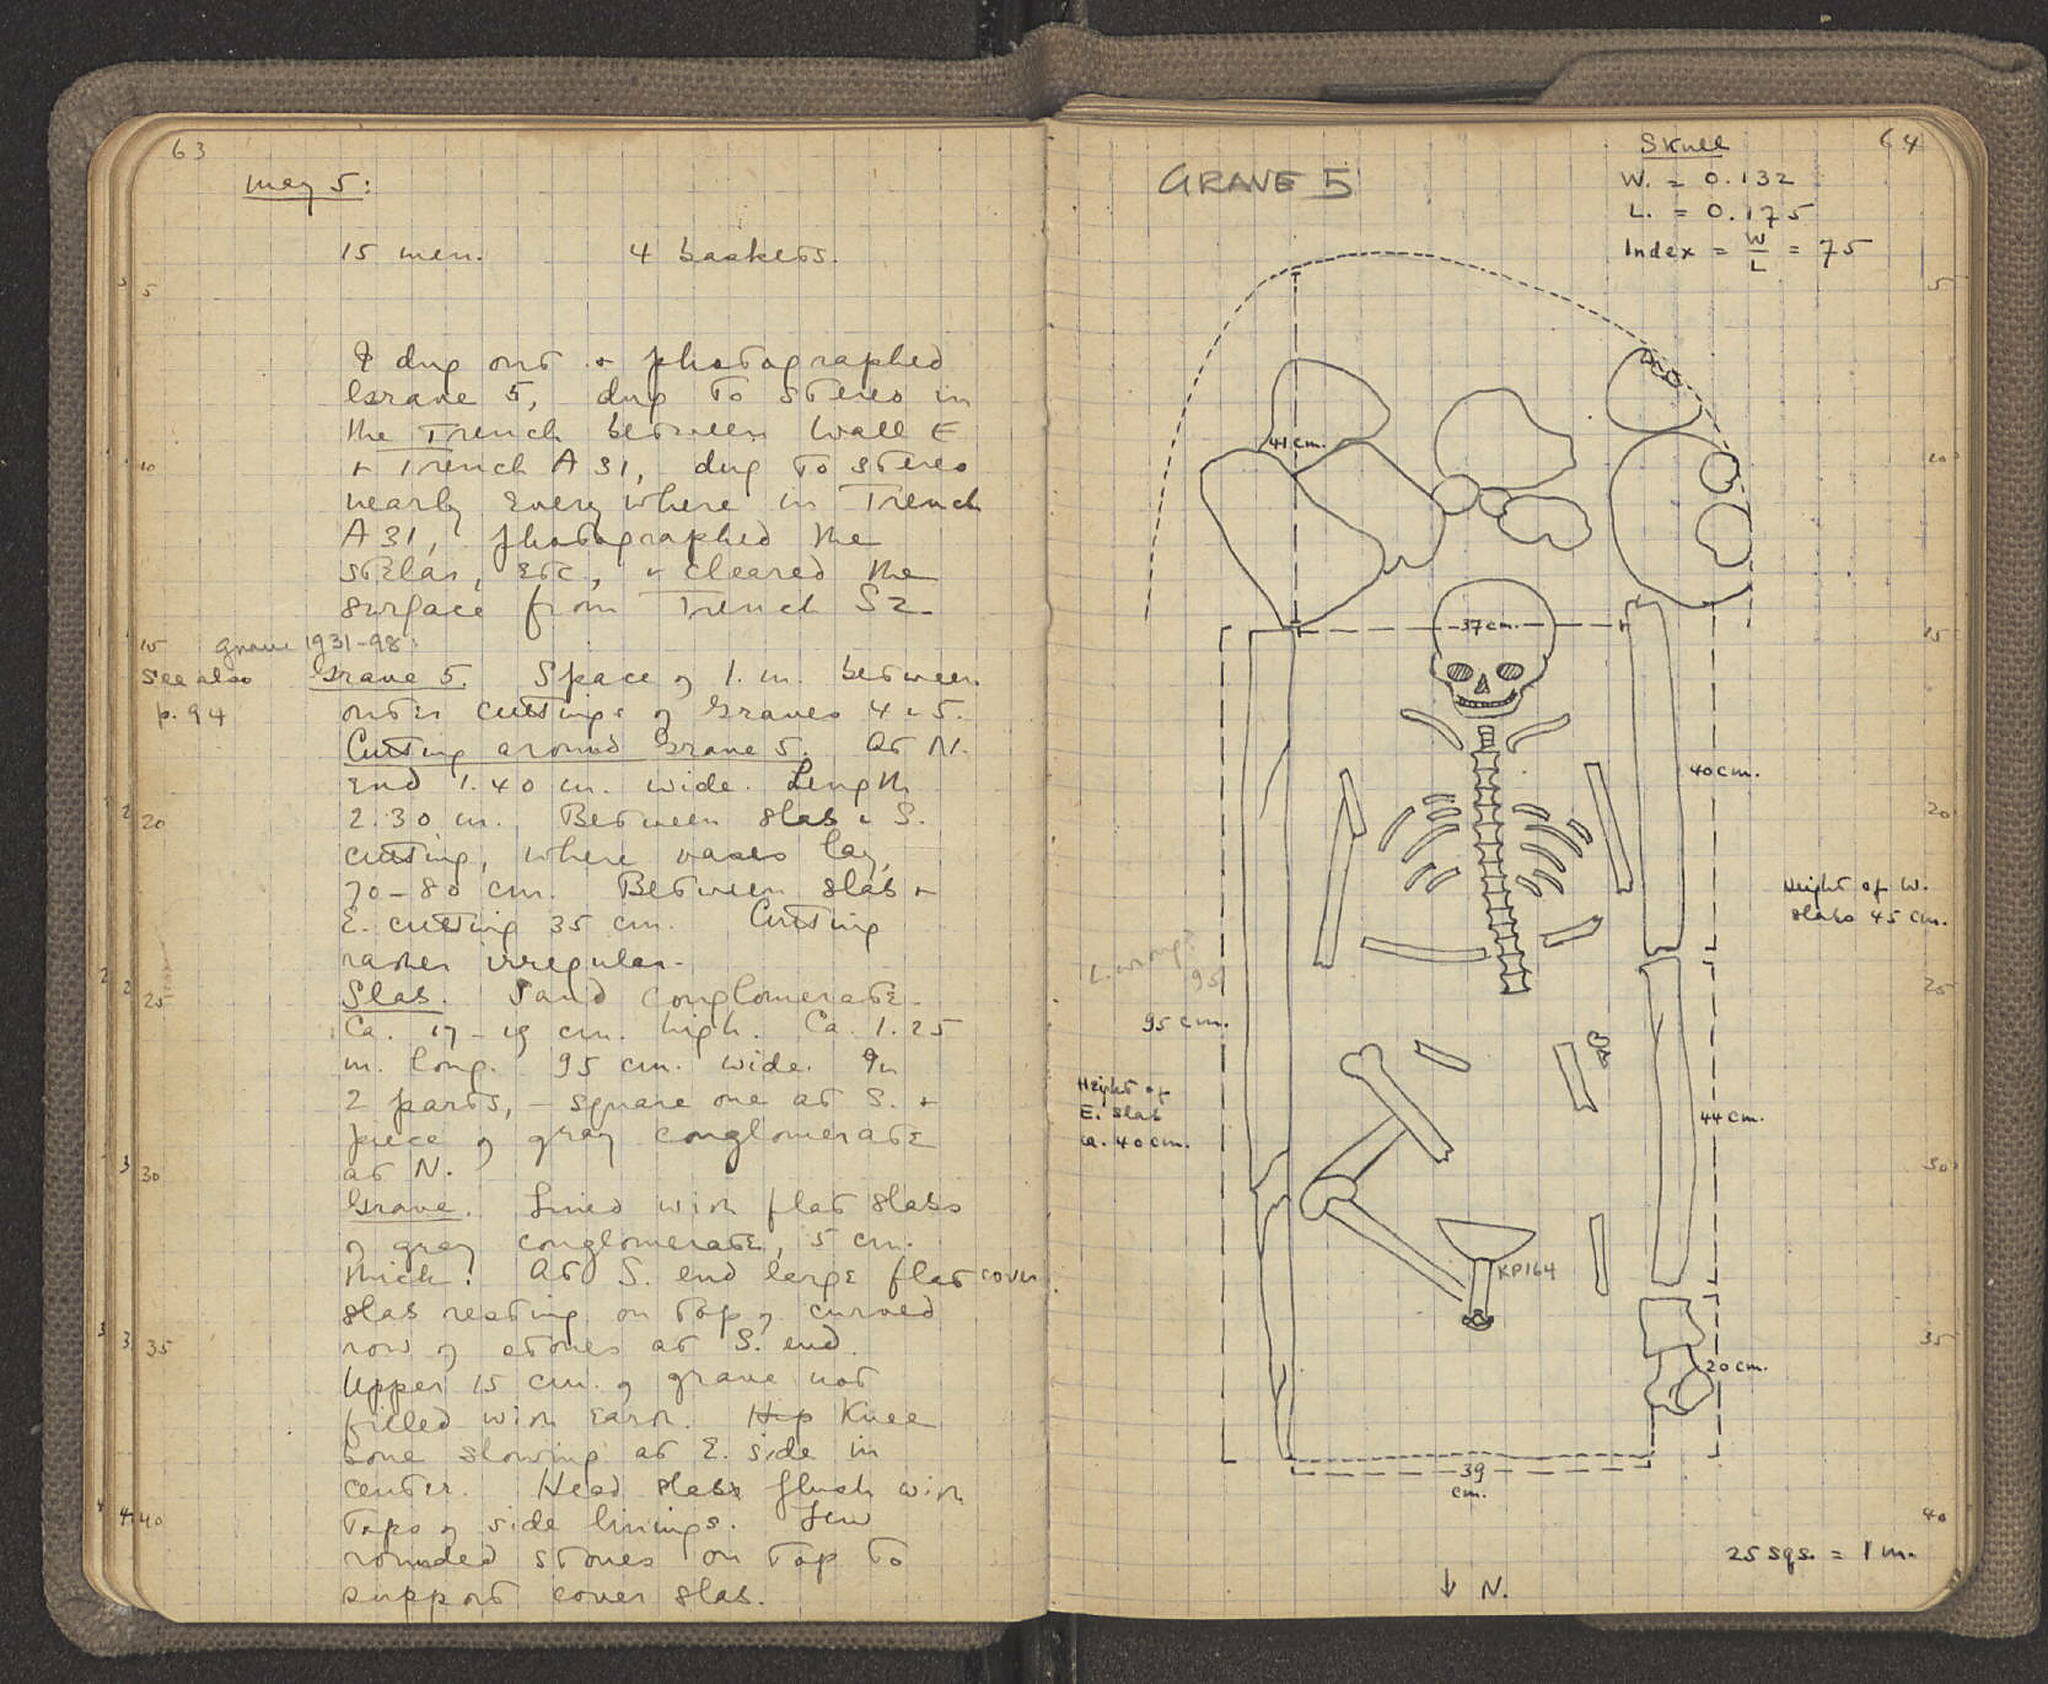 63
May 5:
15 men. 4 baskets.
I dug out + photographed
Grave 5, dug to stereo in
the Trench between Wall E
+ Trench A 31, dug to stereo
nearly everywhere in Trench
A 31, photographed the
stelai, etc, + cleared the
surface from Trench S2.
Grave 1931-98:
See also
p. 94
Grave 5. Space of 1. m. between
outer cuttings of Graves 4 + 5.
Cutting around Grave 5. At N.
end 1.40 m. wide. Length
2.30 m. Between slab + S.
cutting, where vases lay,
70-80 cm. Between slab +
E. cutting 35 cm. Cutting
rather irregular.
Slab. Sand conglomerate.
Ca. 17-19 cm. high. Ca. 1.25
m. long. 95 cm. wide. In
2 parts, - square one at S. +
piece of gray conglomerate
at N.
Grave. Lined with flat slabs
of gray conglomerate, 5 cm.
thick. At S. end large flat cover
slab resting on top of curved
row of stones at S. end.
Upper 15 cm. of grave not
filled with earth. Hip Knee
bone showing at E. side in
center. Head slabs flush with
tops of side linings. Few
rounded stones on top to
support cover slab.
5
10
15
20
25
30
35
40
64
GRAVE 5
Skull
W. = 0.132
L. = 0.175
Index = W/L = 75
41 cm.
37 cm.
40 cm.
Height of W.
slabs 45 cm.
95
95 cm.
Height of
E. slab
ca. 40 cm.
44 cm.
KP164
20 cm.
39
cm.
25 sqs. = 1 m.
↓ N.
5
10
15
20
25
30
35
40